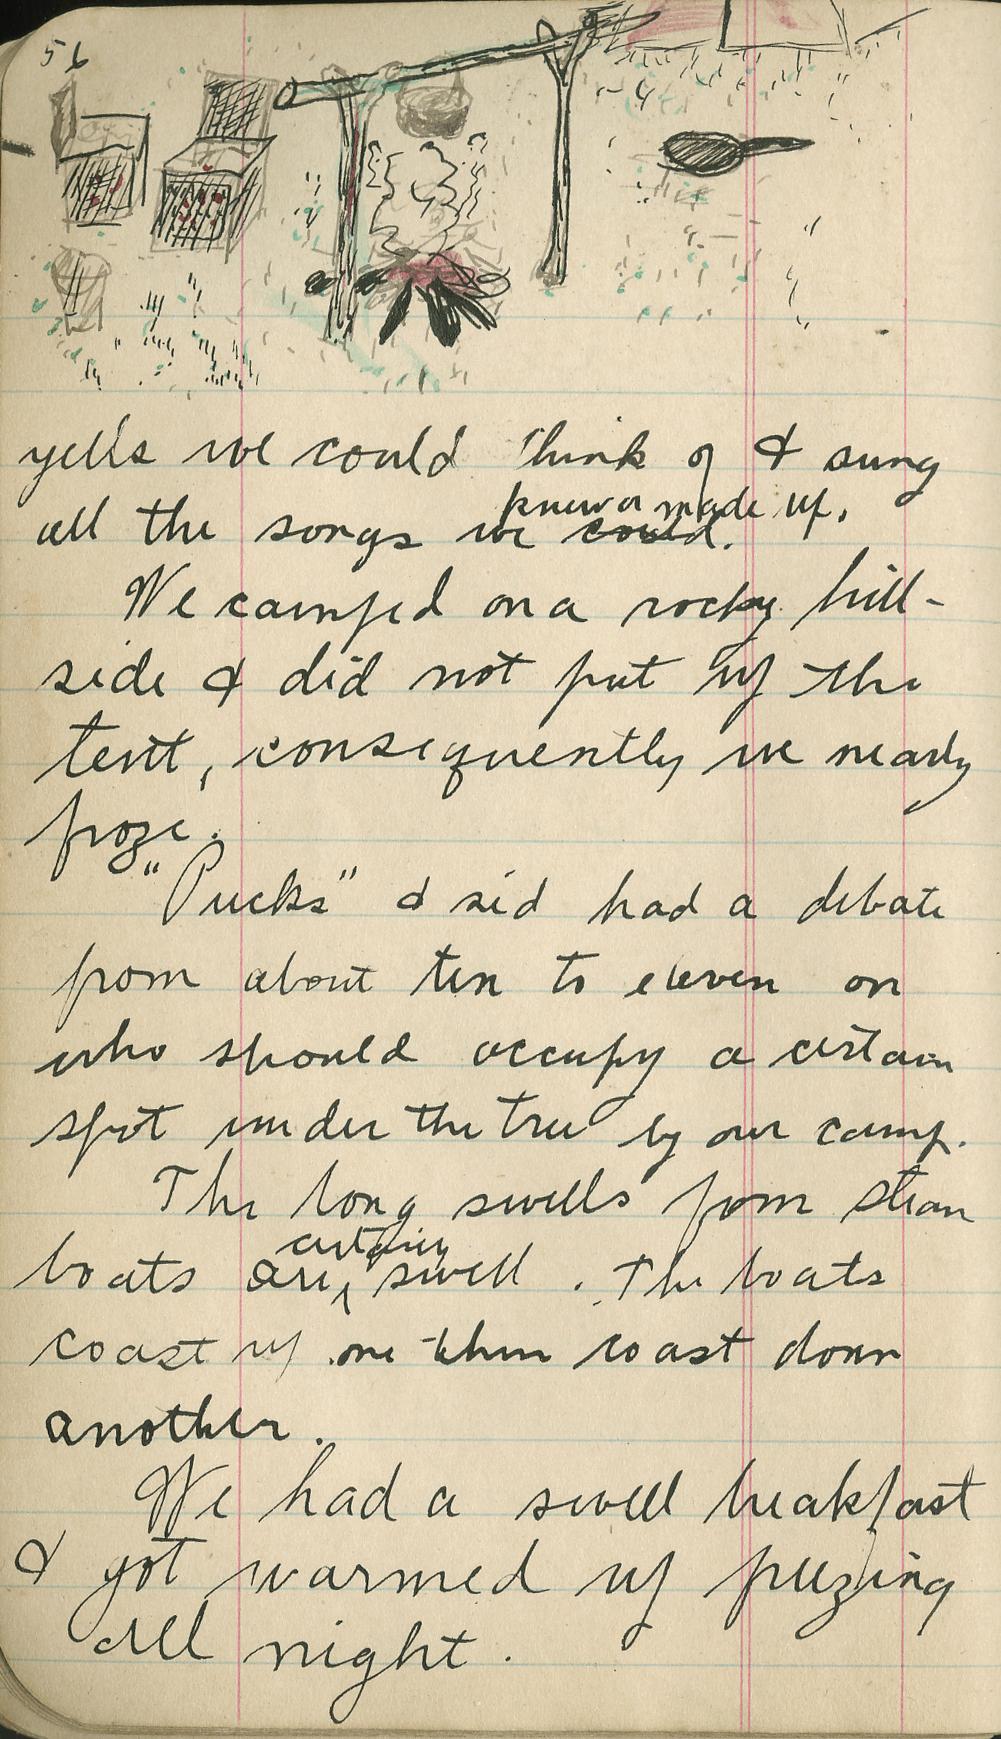 56
yells we could think of & sung
knew or made up.
all the songs we could.
We camped on a rocky hill-
side & did not put up the
tent, consequently we nearly
froze.
"Pucks" & sid had a debate
from about ten to eleven on
who should occupy a certain
spot under the tree by our camp.
The long swells from steam
certainly
boats are swell. The boats
coast up one then coast down
another.
We had a swell breakfast
& got warmed up freezing
all night.